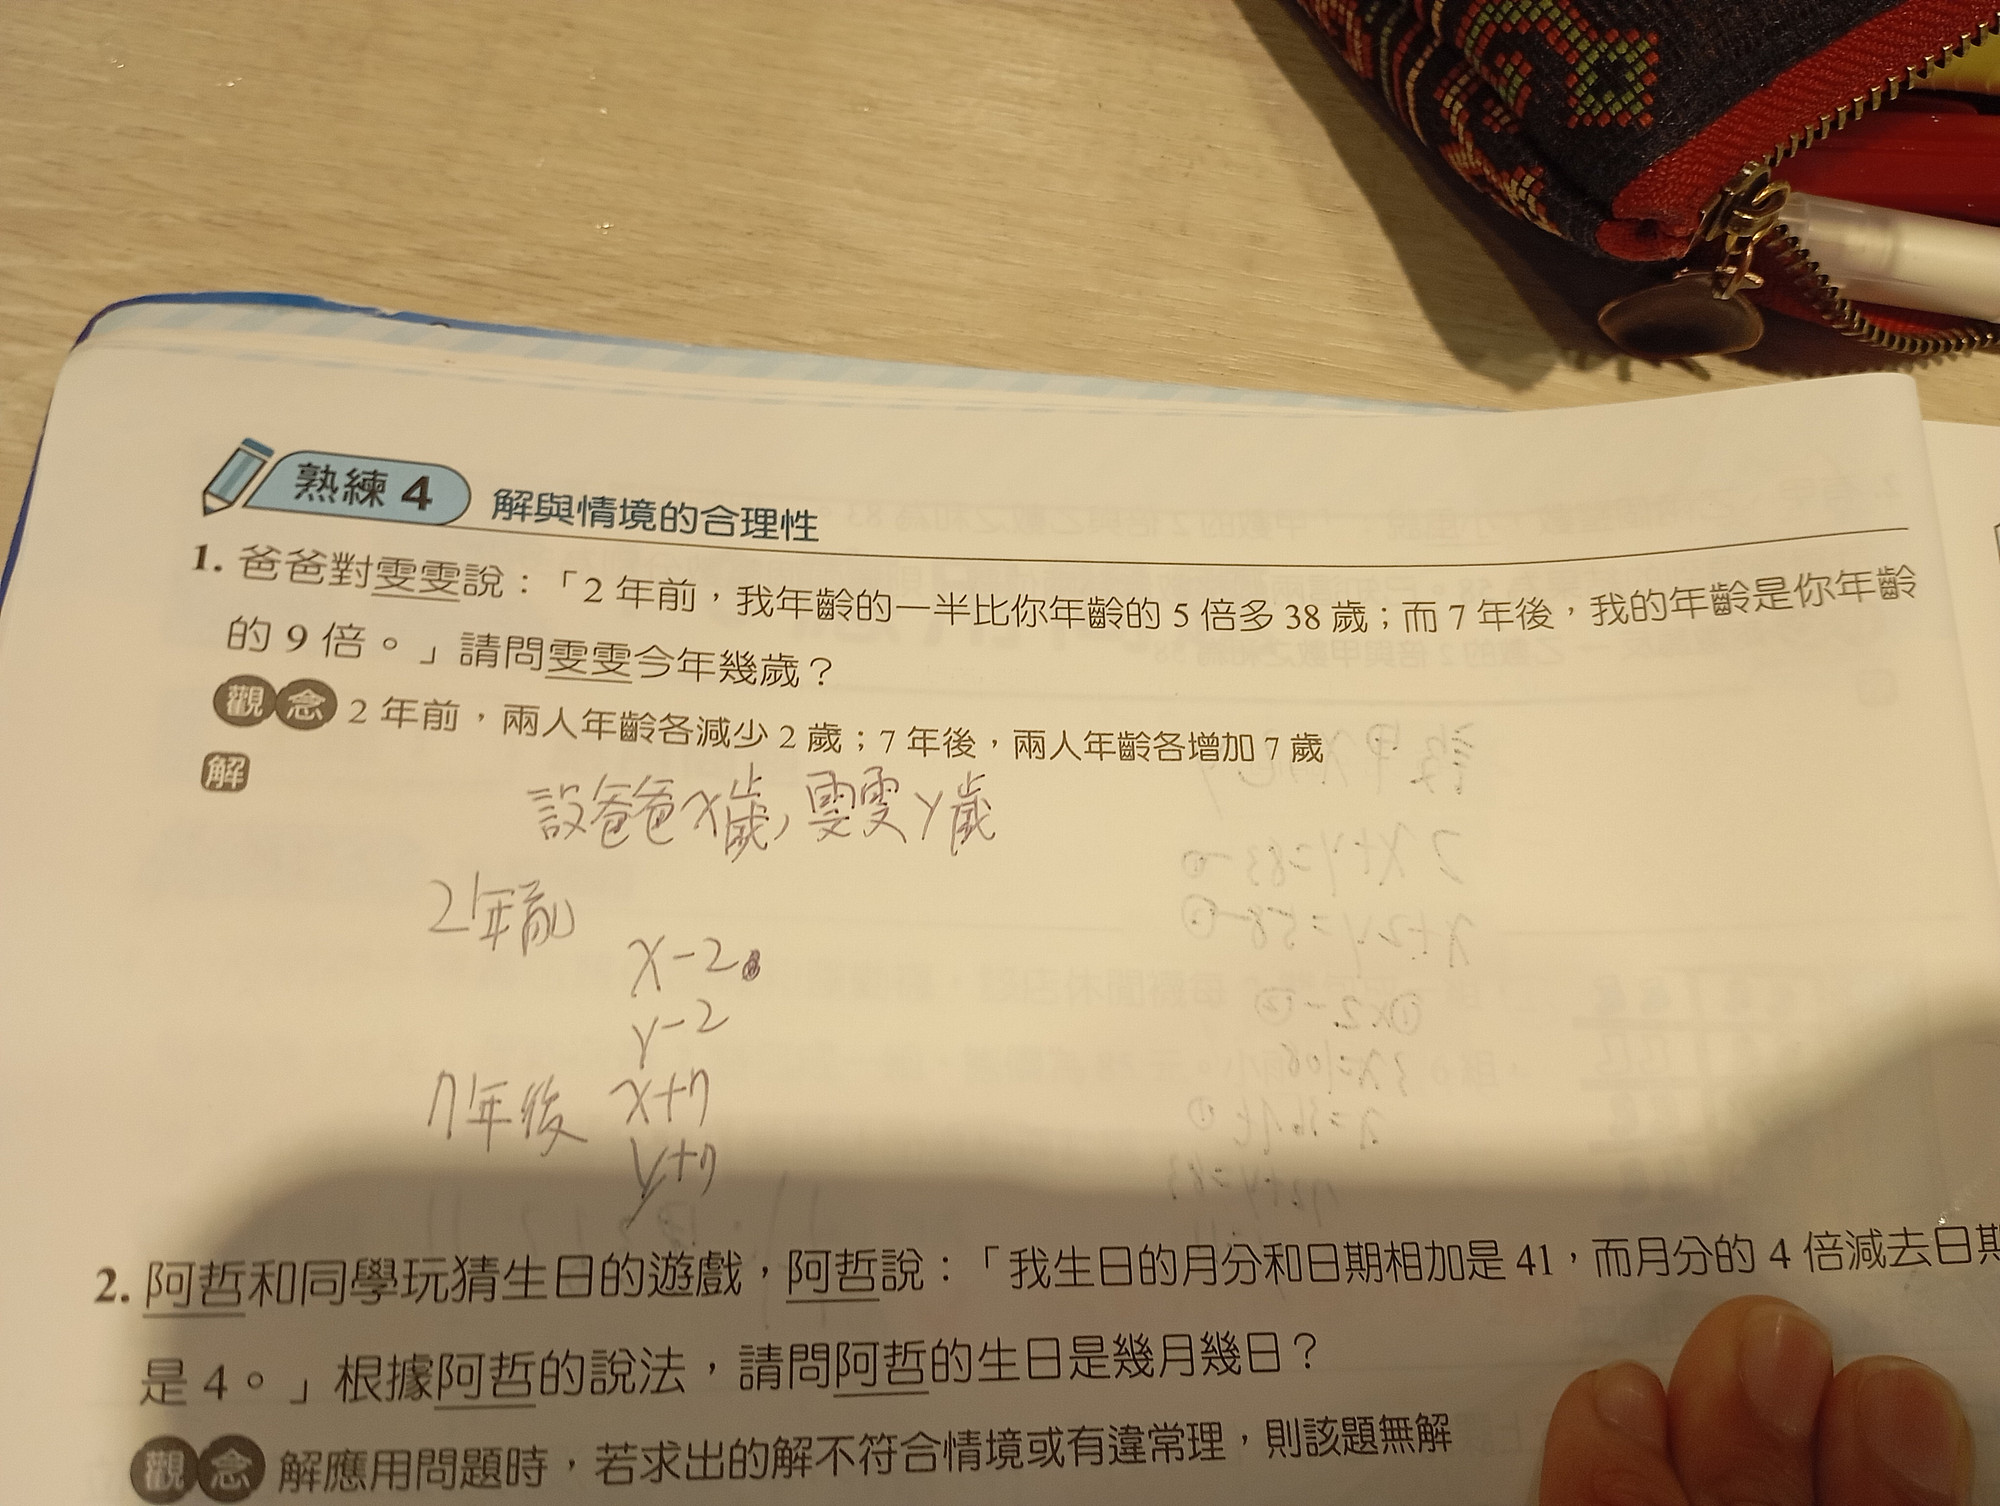 熟練 4 解與情境的合理性
1. 爸爸對雯雯說：「2 年前，我年齡的一半比你年齡的 5 倍多 38 歲；而 7 年後，我的年齡是你年齡
的 9 倍。」請問雯雯今年幾歲？
觀念 2 年前，兩人年齡各減少 2 歲；7 年後，兩人年齡各增加 7 歲
解
設爸爸x歲，雯雯y歲
2年前
x-2
y-2
7年後 x+7
y+7
2. 阿哲和同學玩猜生日的遊戲，阿哲說：「我生日的月分和日期相加是 41，而月分的 4 倍減去日期
是 4。」根據阿哲的說法，請問阿哲的生日是幾月幾日？
觀念 解應用問題時，若求出的解不符合情境或有違常理，則該題無解